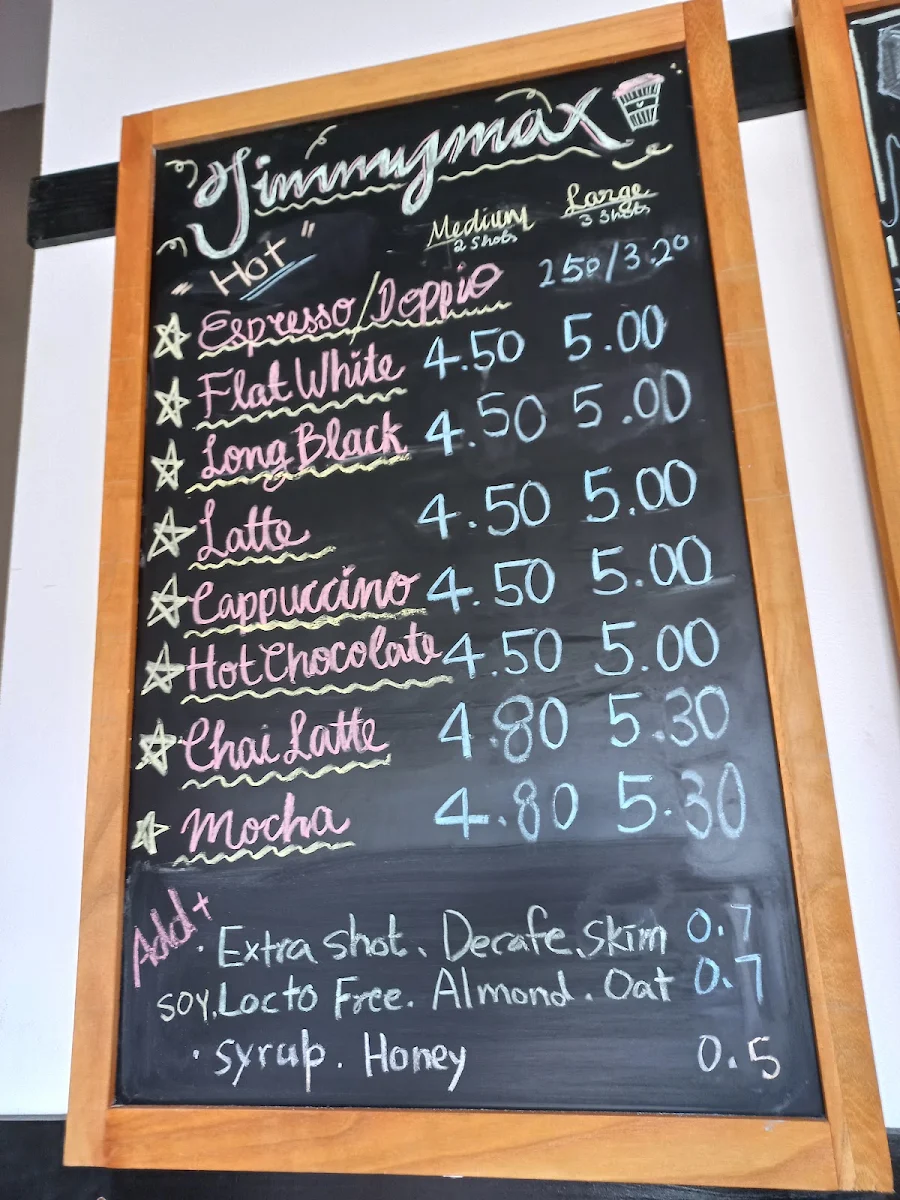 Jimmymax
"Hot" Medium Large
2 Shots 3 Shots
Espresso/Doppio 250/3.20
Flat White 4.50 5.00
Long Black 4.50 5.00
Latte 4.50 5.00
Cappuccino 4.50 5.00
Hot Chocolate 4.50 5.00
Chai Latte 4.80 5.30
Mocha 4.80 5.30
Add+
· Extra shot. Decafe. Skim 0.7
soy. Locto Free. Almond. Oat 0.7
· syrup. Honey 0.5